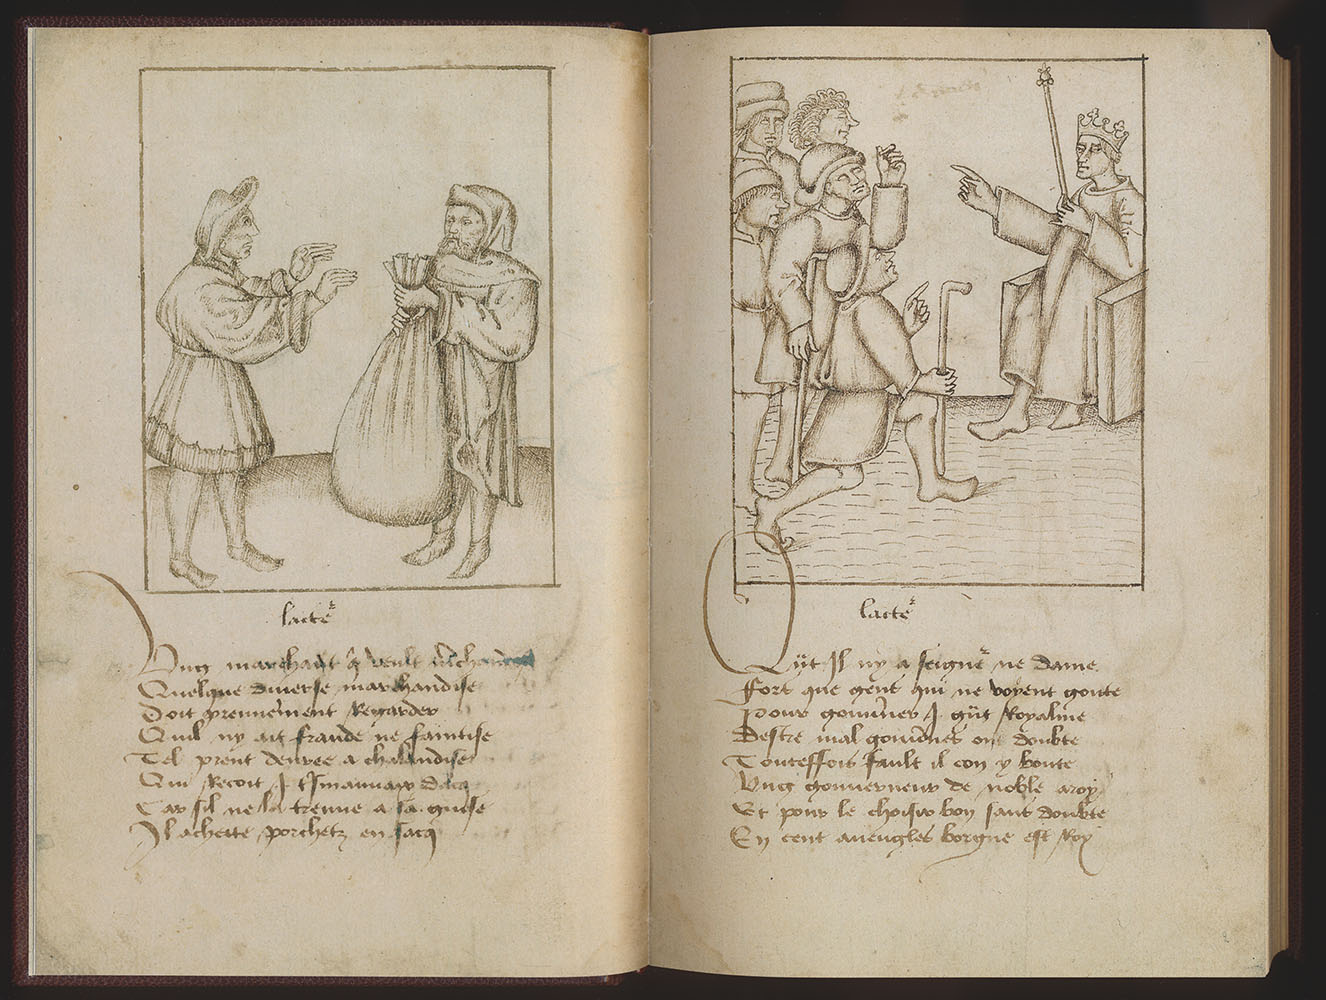 lacteᵉ
Ung marchant q̄ veult
Quelque diverse marchandise
Doit prennement Regarder
Quil ny ait fraude ne faintise
Tel prent denree a chalandise
Qui Recoit
Car sil ne la treuue a sa guise
Il achette porchetz en sacq
lacteᵉ
Qüt Il ny a seignᵉ ne dame
Fors que gens qui ne voyent goute
Pour gouuᵉner j. güt Royalme
Destre mal gouuᵉnes ont doubte
Touteffois fault il con y boute
Ung gouuerneur de noble aroy
Et pour le choisir bon sans doubte
En cent aueugles borgne est Roy